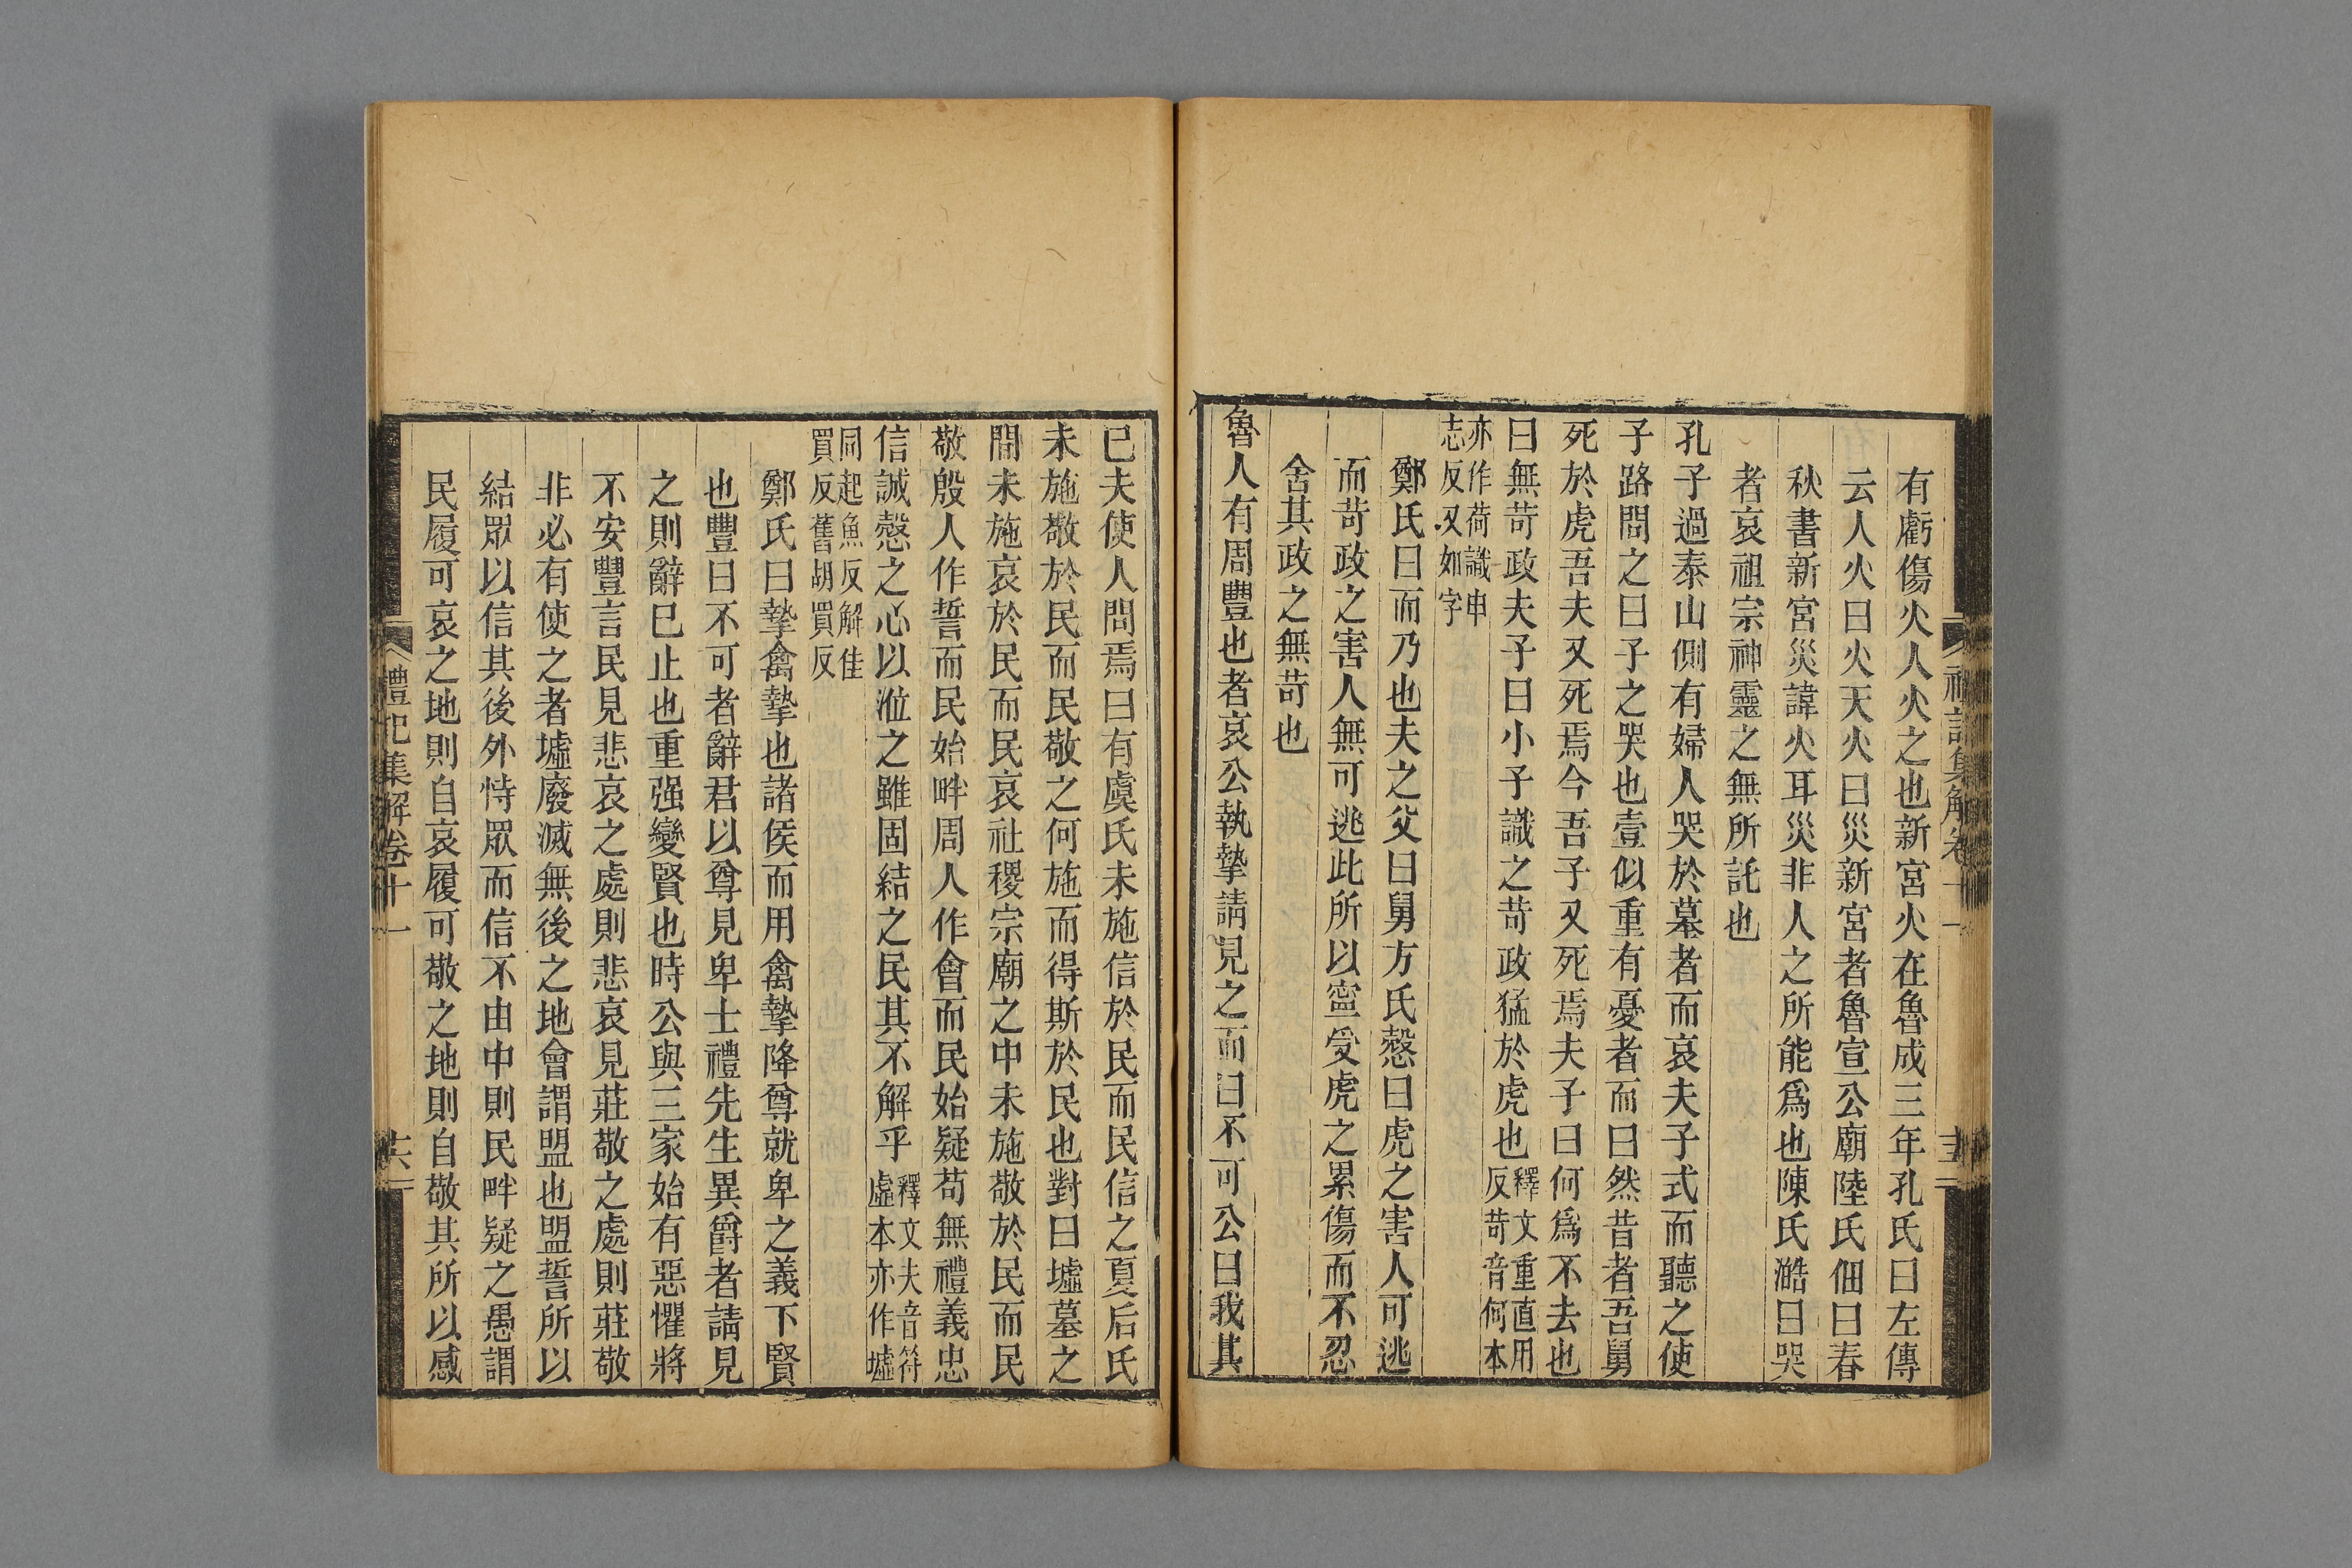 有虧傷火人火之也新宮火在魯成三年孔氏曰左傳
云人火曰火天火曰災新宮者魯宣公廟陸氏佃曰春
秋書新宮災諱火耳災非人之所能爲也陳氏澔曰哭
者哀祖宗神靈之無所託也
孔子過泰山側有婦人哭於墓者而哀夫子式而聽之使
子路問之曰子之哭也壹似重有憂者而曰然昔者吾舅
死於虎吾夫又死焉今吾子又死焉夫子曰何爲不去也
曰無苛政夫子曰小子識之苛政猛於虎也釋文重直用反苛音何本
亦作荷識申志反又如字
鄭氏曰而乃也夫之父曰舅方氏慤曰虎之害人可逃
而苛政之害人無可逃此所以寍受虎之累傷而不忍
舍其政之無苛也
魯人有周豐也者哀公執摯請見之而曰不可公曰我其
已夫使人問焉曰有虞氏未施信於民而民信之夏后氏
未施敬於民而民敬之何施而得斯於民也對曰墟墓之
閒未施哀於民而民哀社稷宗廟之中未施敬於民而民
敬殷人作誓而民始畔周人作會而民始疑苟無禮義忠
信誠慤之心以涖之雖固結之民其不解乎釋文夫音符虛本亦作墟
同起魚反解佳買反舊胡買反
鄭氏曰摯禽摯也諸侯而用禽摯降尊就卑之義下賢
也豐曰不可者辭君以尊見卑士禮先生異爵者請見
之則辭已止也重强變賢也時公與三家始有惡懼將
不安豐言民見悲哀之處則悲哀見莊敬之處則莊敬
非必有使之者墟廢滅無後之地會謂盟也盟誓所以
結眾以信其後外恃眾而信不由中則民畔疑之愚謂
民履可哀之地則自哀履可敬之地則自敬其所以感
禮記集解卷十一
十六